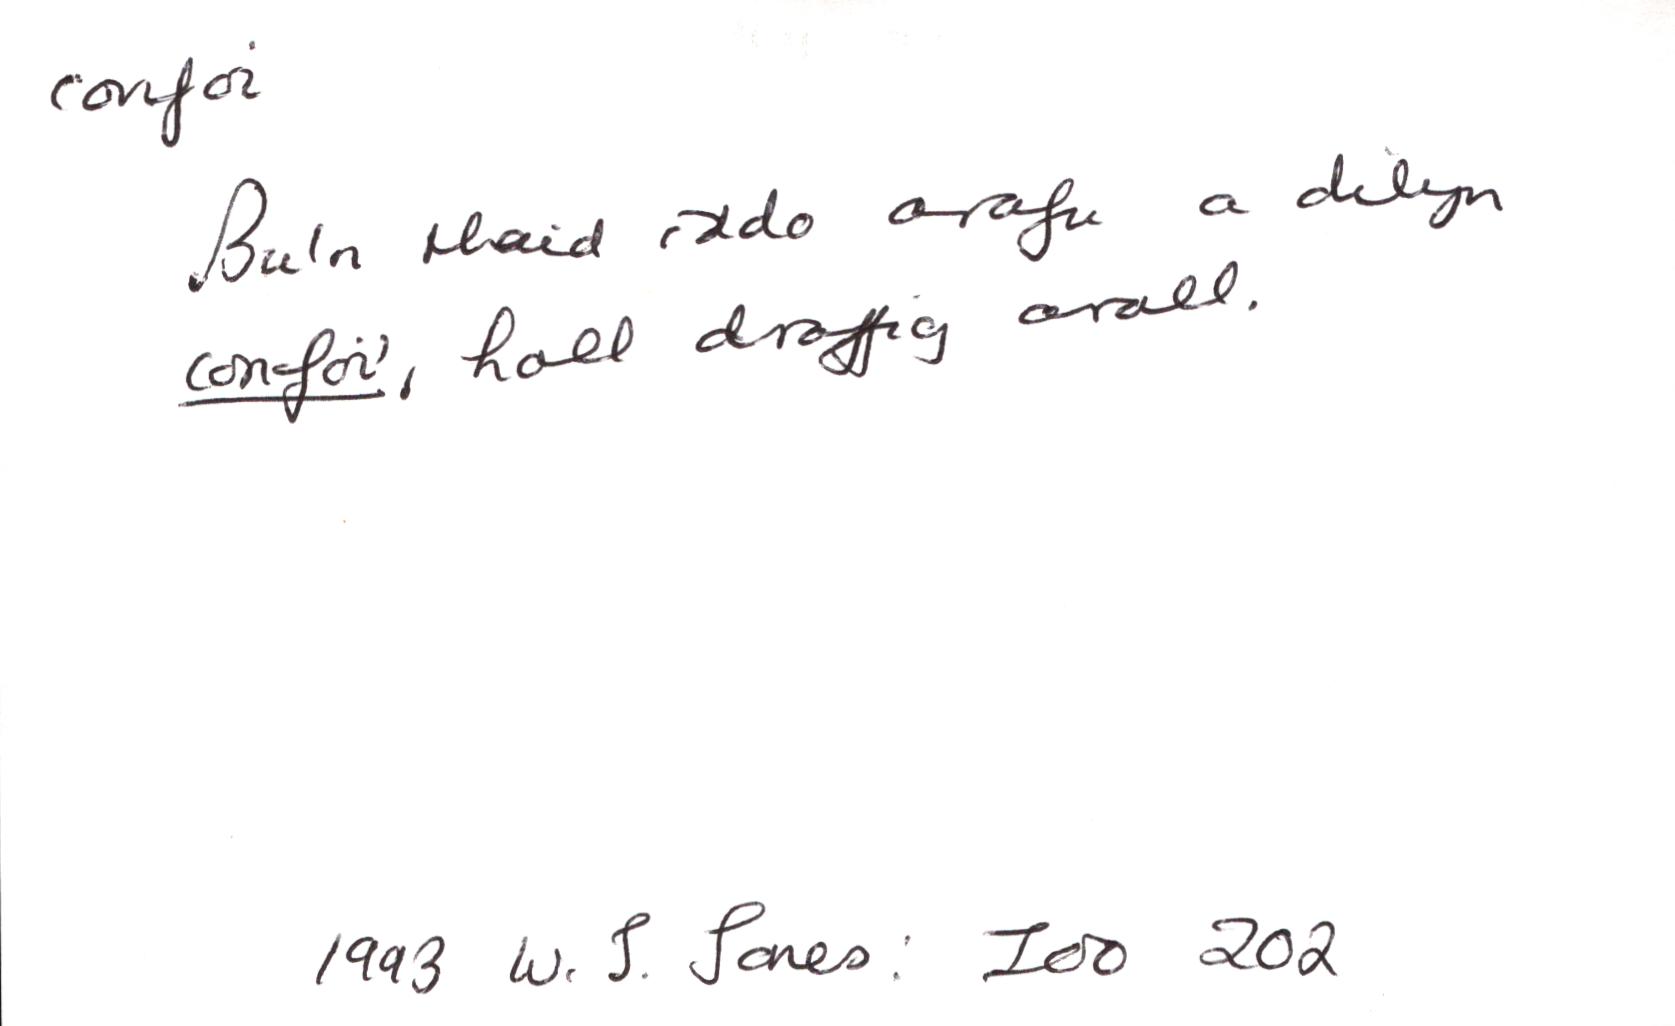 confoi
Bu'n rhaid iddo arafu a dilyn
confoi', holl draffig arall.
1993 W. J. Jones: Ioo 202